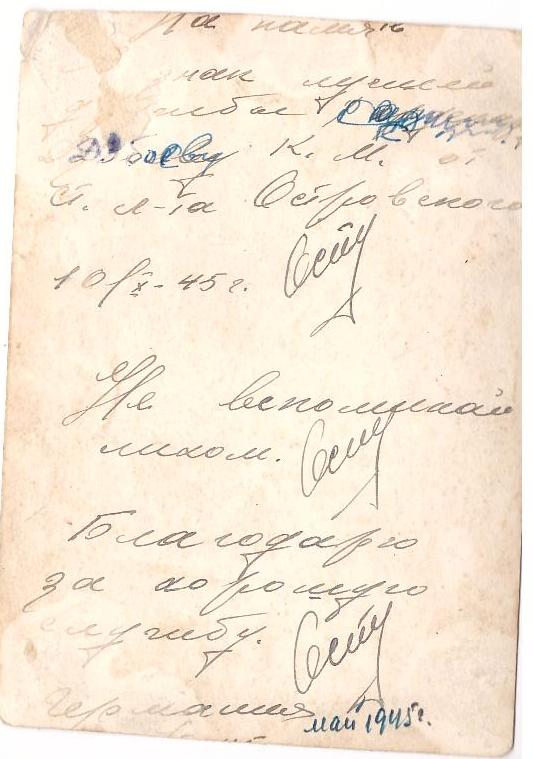 На память
знак лучшей
службы
К. М. от
ст. л-та Островского
10/IX-45г.
Не вспоминай
лихом.
Благодарю
за хорошую
службу.
Германия май 1945г.